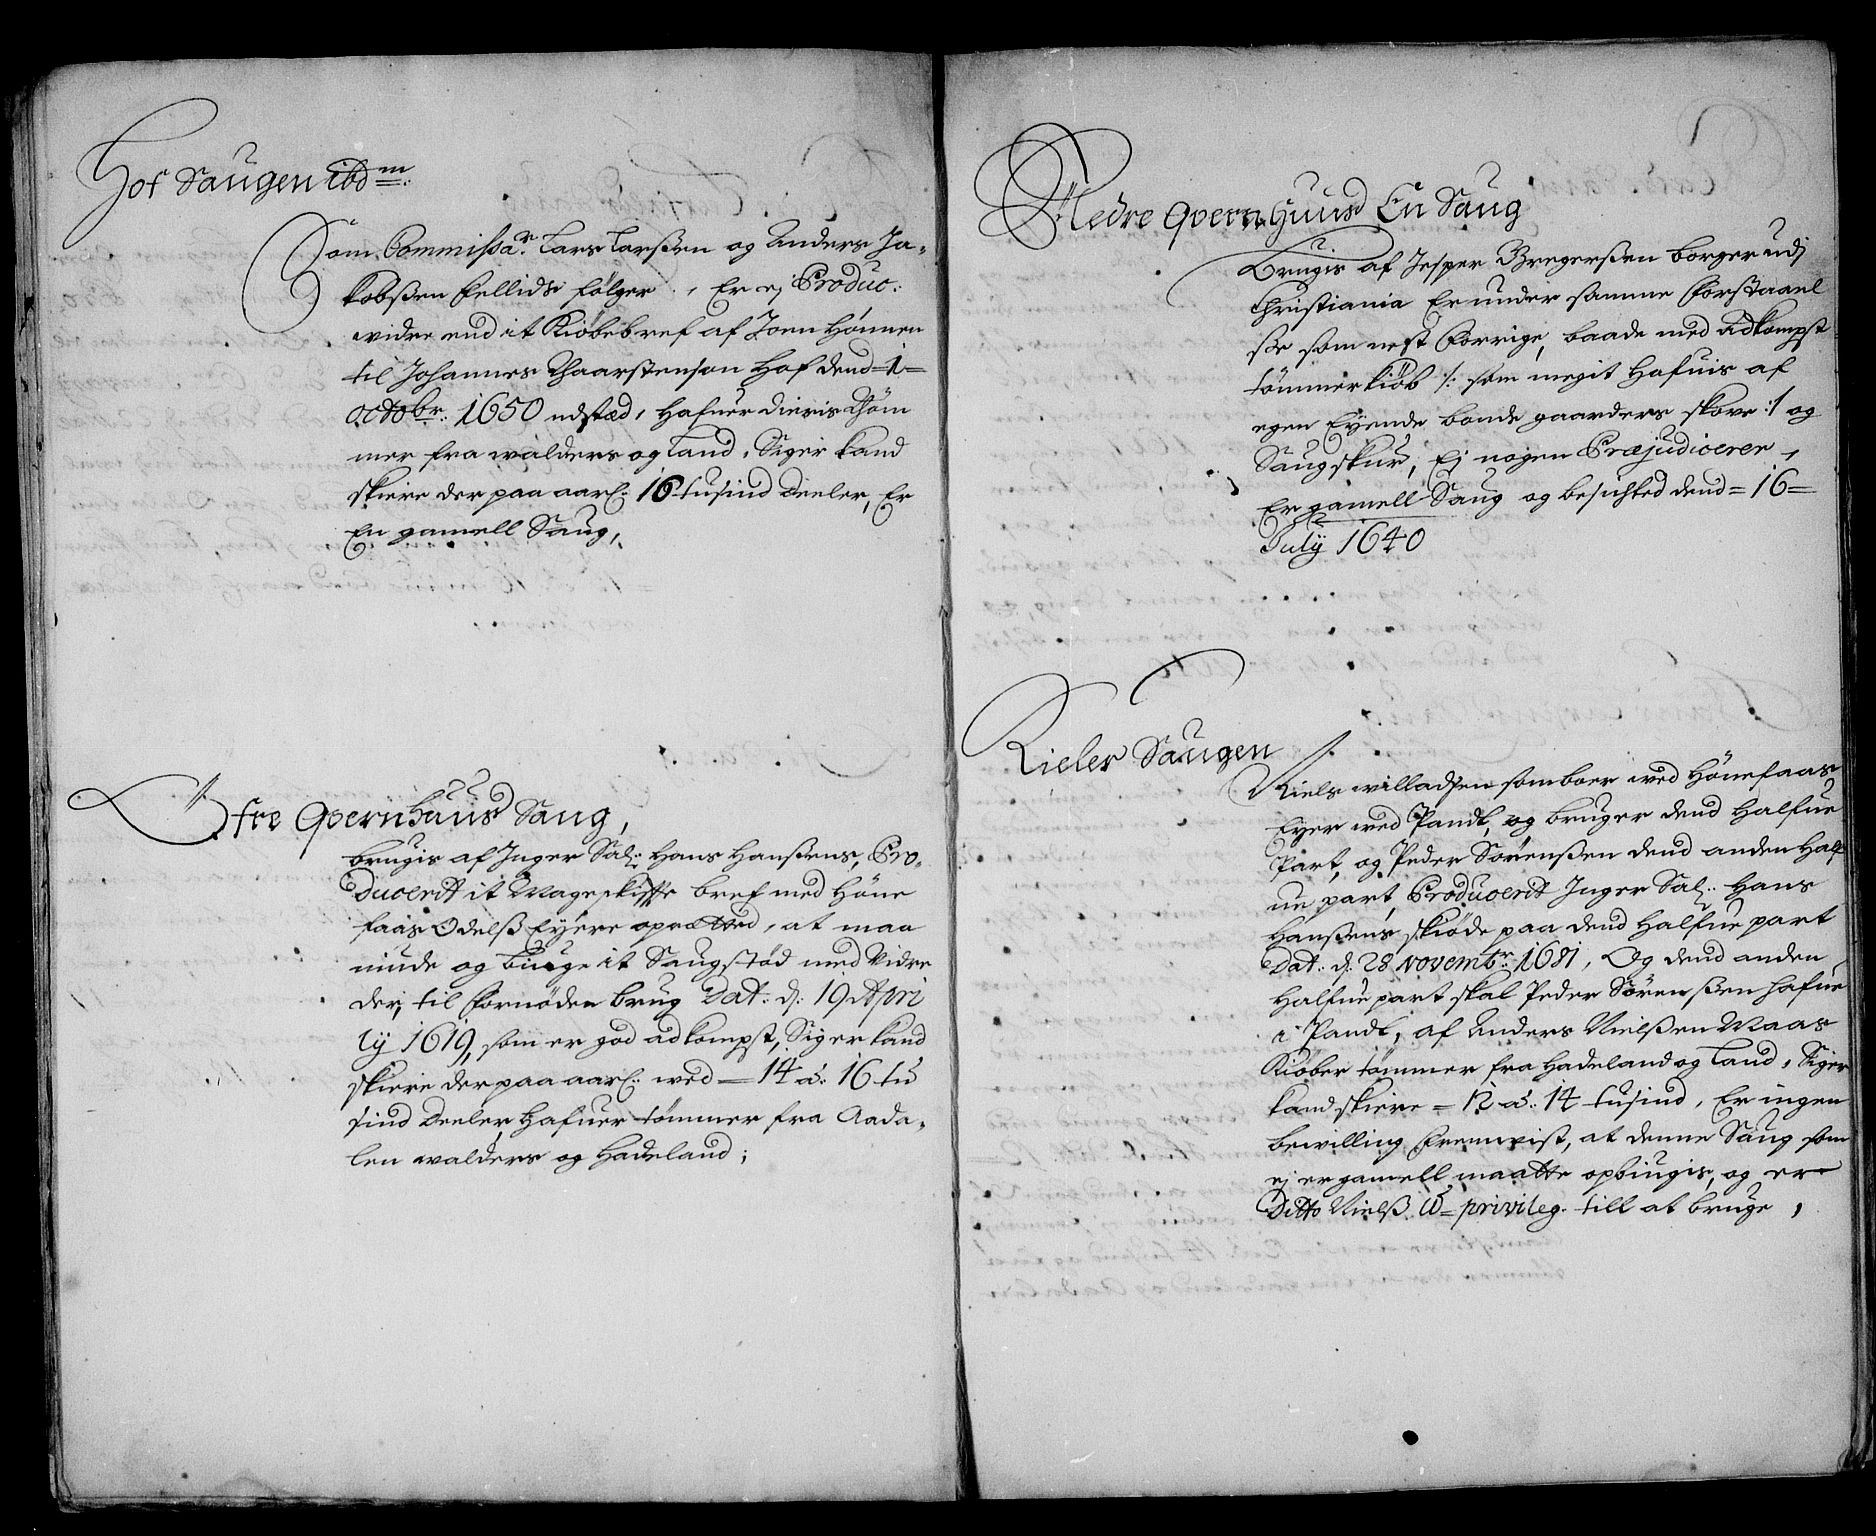 Hof Saugen ibdm:
Som Commissar: Lars Larssen og Anders Ja-
kobssen Fellids følger, Er ej Produc:
widre end it Kiøbebref af Joen Hønnen
til Johannes Thaarstenson Hof dend =1=
octobr: 1650 udstæd, Hafuer dieris Thöm
mer fra walders og Land, Siger kand
skiere der paa aarl: 16 tusind Deeler, Er
En gamell Saug,
Øfre Qvernhuus Saug,
brugis af Inger Sal: Hans Hanssens, Pro-
ducerit it Mageskiffte bref med Høne
faas Odelss Eyere oprætted, at maa
niude og biuge it Saugstød med Vidre
der, til fornöden brug Dat: d: 19 Apri
ly 1619, som er god adkompst, Siger kand
skiere der paa aarl: wed = 14 a: 16 tu
sind Deeler, Hafuer tømmer fra Aada-
len walders og Hadeland;
Nedre Qvernhuus En Saug
Brugis af Jesper Bregerssen borger udj
Christiania Er under samme Forstaael
sse som nest Forrige, baade med adkompst
tømmerkiøb /: som megit Hafuis af
egen Eyende bonde gaarders skove :/ og
Saugskur, Ej nogen Præjudicerer,
Er gamell Saug og besichted dend = 16 =
July 1640
Kieler Saugen
Niels willadsen som boer wed Hønefaas
Eyer wed Pandt, og bruger dend Halfue
Part, og Peder Sørenssen dend anden Half
ue part, Producerit Inger Sal: Hans
Hanssens skiøde paa dend Halfue part
Dat: d: 28 novembr: 1681, Og dend anden
Halfue part skal Peder Sørenssen hafue
i Pandt, af Anders Nielssen Maas
Kiøber tømmer fra Hadeland og Land, Siger
kand skiere = 12 a: 14 tusind, Er ingen
bewilling Fremvist, at denne Saug som
ej er gamell maatte opbiugis, og er
Ditto Nielss U= privileg. till at bruge,